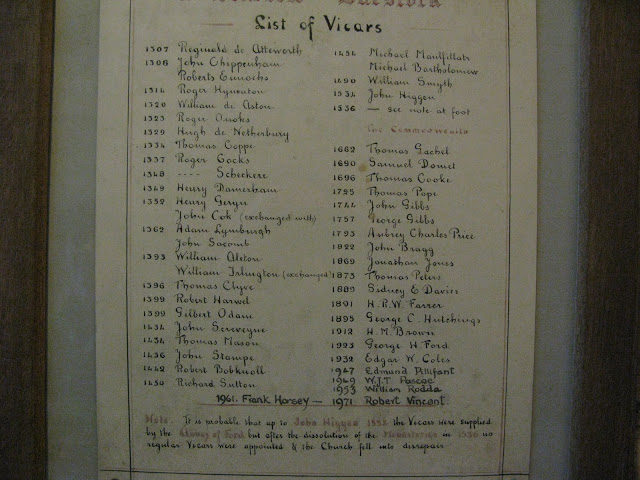 List of Vicars
1307 Reginald de Atteworth
1308 John Chippenham
Roberts Eunochs
1314 Roger Kynewton
1320 William de Aston
1323 Roger Onoks
1329 Hugh de Netherbury
1334 Thomas Coppe
1337 Roger Cocks
1348 ---- Scheckere
1349 Henry Damerham
1352 Henry Geryn
John Cok (exchanged with)
1362 Adam Lymburgh
John Sacomb
1393 William Aleton
William Irlington (exchanged)
1396 Thomas Clyve
1399 Robert Harwel
1399 Gilbert Odam
1434 John Screveyne
1434 Thomas Mason
1436 John Stampe
1442 Robert Bobknoll
1450 Richard Sutton
Michael Maulfillats
Michael Bartholomew
1490 William Smyth
1534 John Higgen
1536 — see note at foot
The Commonwealth
1662 Thomas Gachel
1690 Samuel Doniel
1696 Thomas Cooke
Thomas Pope
1744 John Gibbs
1757 George Gibbs
1793 Aubrey Charles Price
1822 John Bragg
1869 Jonathan Jones
1873 Thomas Peters
1889 Sidney E. Davies
1891 H.R.W. Farrer
1895 George C. Hutchings
1912 H.M. Brown
1923 George H. Ford
1932 Edgar W. Coles
1947 Edmund Pillifant
1949 W.J.T. Pascoe
1953 William Rodda
1961. Frank Horsey — 1971 Robert Vincent
Note. It is probable that up to John Higgen the Vicars were supplied
by the Abbey of Ford but after the dissolution of the Monasteries in 1536 no
regular Vicars were appointed & the Church fell into disrepair